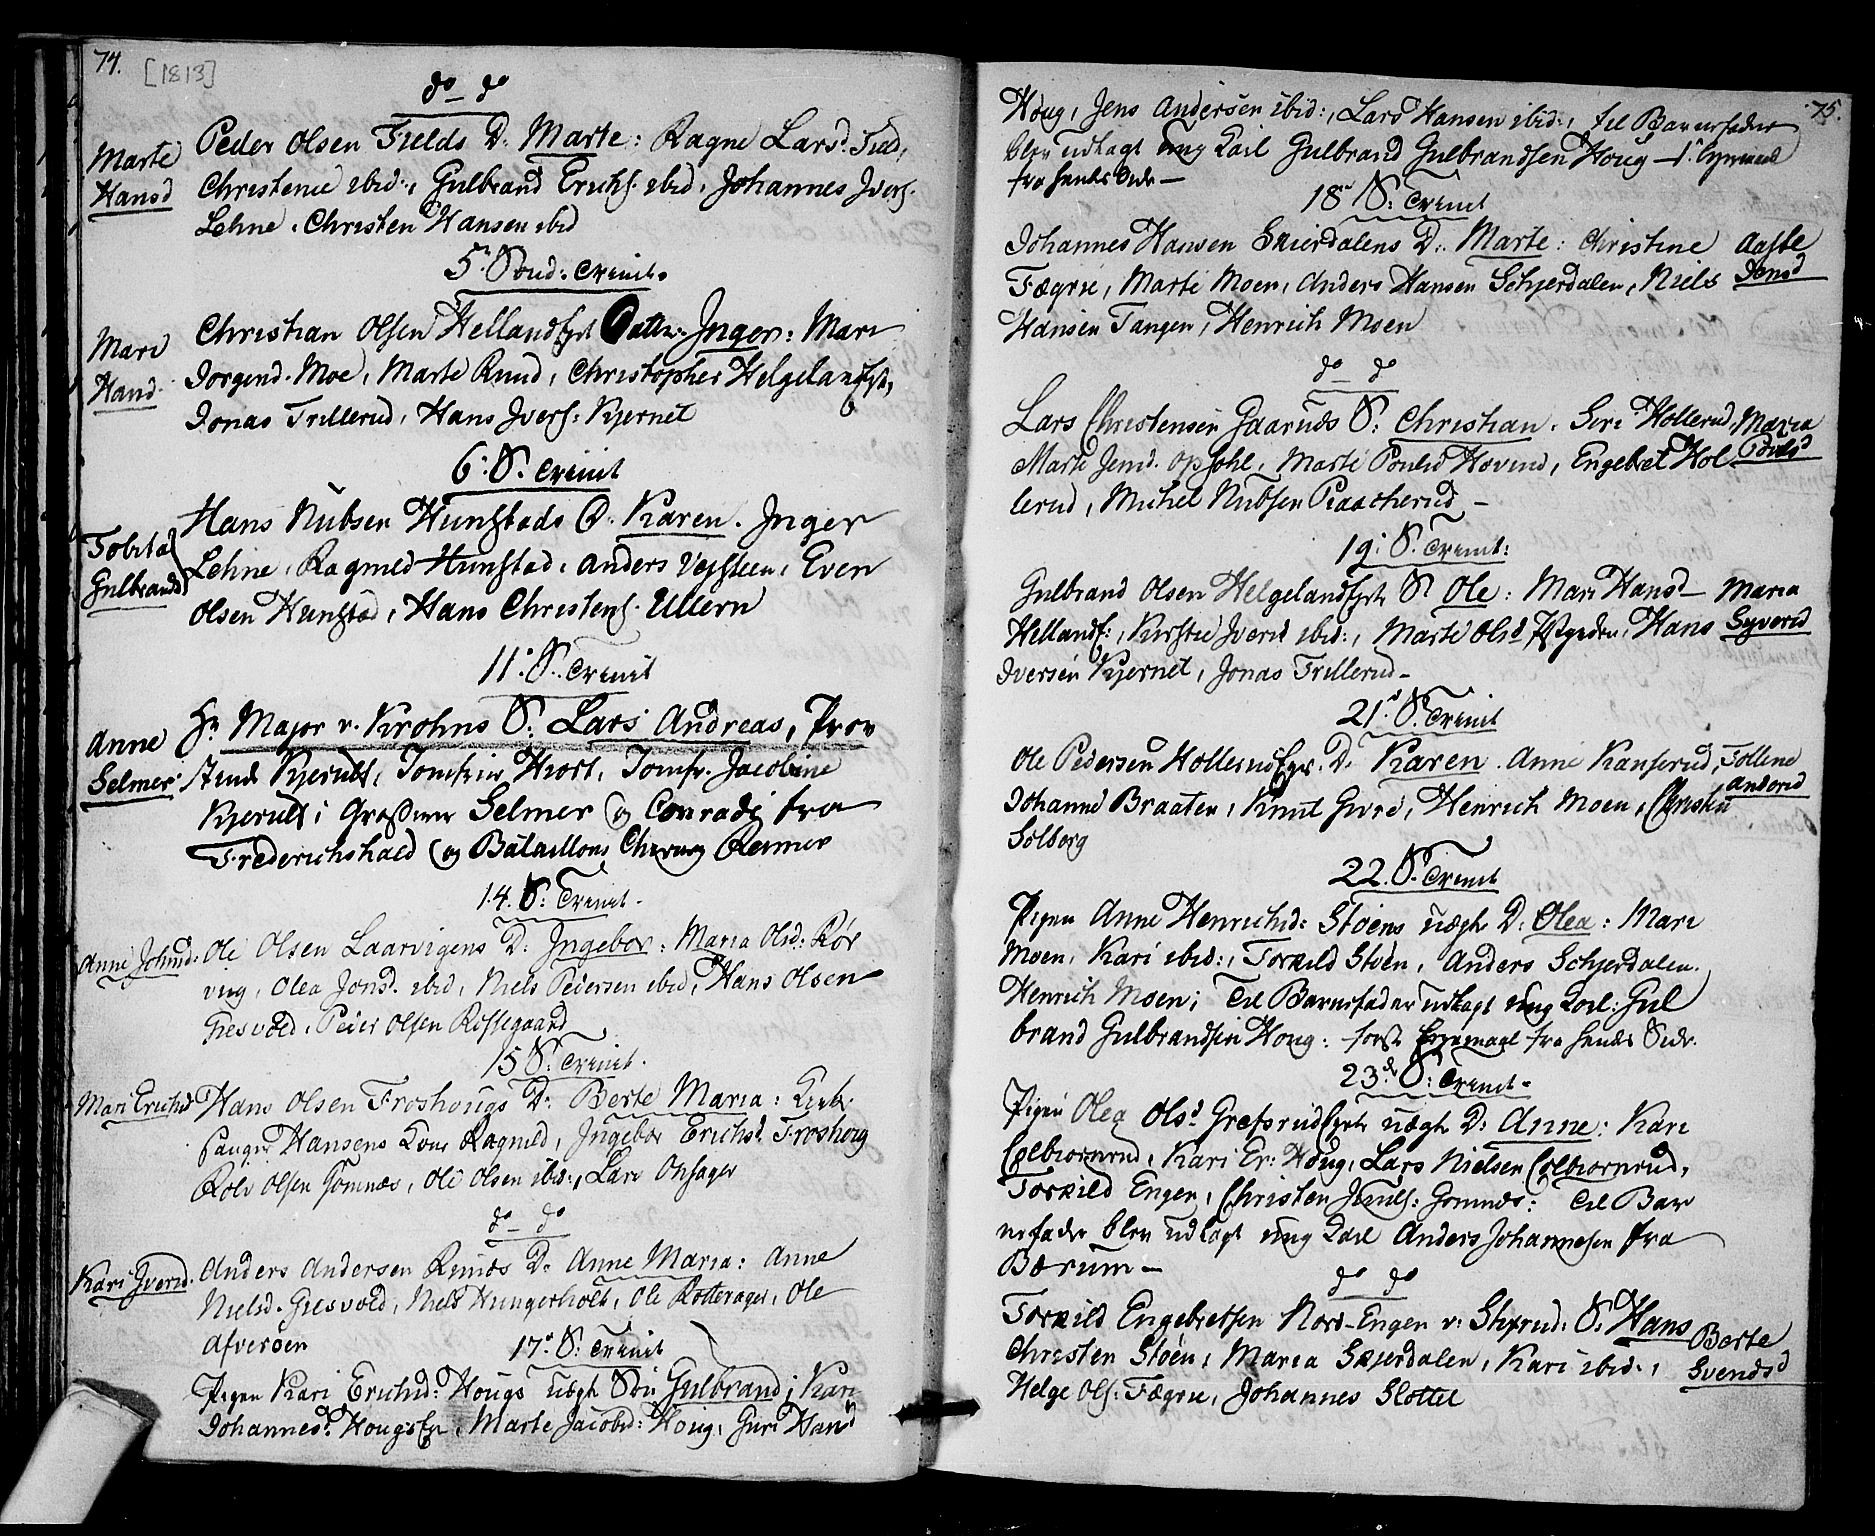 74. [1813]
do — do
Marte Hansd
Peder Olsen Fields D. Marte: Ragne Larsd. Field,
Christenie ibid:, Gulbrand Erichs. ibid, Johannes Ivers.
Lehne, Christen Hansen ibid
5. Sønd. Trinit.
Mari Hansd.
Christian Olsen Hellands Datter Inger: Mari
Jorgensd. Moe, Marte Ruud, Christopher Helgelands,
Jonas Trillerud, Hans Ivers: Kjernet
6. S. Trinit
Tobita Gulbrandsd
Hans Nubsen Hunstads D. Karen. Inger
Lehne, Ragnild Hunstad, Anders Vejsteen, Even
Olsen Hunstad, Hans Christens. Ullern
11. S. Trinit
Anne Selmer
Hr Major v. Krohns S. Lars Andreas, Prov
stinde Kjerulf, Jomfrue Hiort, Jomfr. Jacobine
Kjerulf; Selmer og Conradi fra
Frederichshald og Batallions Reimer
14. S. Trinit.
Anne Johnsd.
Ole Olsen Laarvigens D: Ingebor: Maria Olsd. Rør
vig, Olea Jonsd. ibid, Niels Pedersen ibid, Hans Olsen
Giesvold, Peder Olsen Rossegaard
15 S. Trinit.
Mari Erichsd
Hans Olsen Froshougs D. Berte Maria:
Hansens Kone Ragnild, Ingebor Erichsd. Froshoug
Rolv Olsen Gomnæs, Ole Olsen ibid:, Lars Onsager
do — do
Kari Iversd.
Anders Andersen Rinæs D. Anne Maria: Anne
Nielsd. Giesvold, Niels Hungerholt, Ole Rotterager, Ole
Afversøen
17. S. Trinit
Pigen Kari Erichsd: Hougs uægte Søn Gulbrand; Kari
Johannesd. Hougs, Marte Jacobsd: Houg, Guri Hansd
75.
Houg, Jens Andersen ibid:, Lars Hansen ibid:, til Barnefader
blev udlagt ung Karl Gulbrand Gulbrandsen Houg — 1te Leyermaal
fra hendes Side —
18de S. Trinit
Johannes Hansen Skierdalens D. Marte: Christine
Fægrie, Marte Moen, Anders Hansen Schjerdalen, Niels
Hansen Tangen, Henrich Moen
Aaste Jensd
do — do
Lars Christensen Gaaruds S. Christian. Siri Hollerud,
Marte Jensd. Opsahl, Marte Poulsd Hovind, Engebret Hol
lerud, Michel Nubsen Raacherud —
Maria Poulsd
19. S. Trinit:
Gulbrand Olsen Helgelands S. Ole: Mari Hansd
Hellands:, Kirstie Iversd ibid:, Marte Olsd, Hans
Iversen Kjernet, Jonas Trillerud —
Maria Syversd
21. S. Trinit
Ole Pedersen Holleruds D. Karen. Anne Kanserud,
Johanne Braaten, Knut Gvre, Henrich Moen, Christen
Solberg
Tollene Andersd
22. S. Trinit
Pigen Anne Henrichsd: Støens uægte D: Olea: Mari
Moen, Kari ibid:, Torkild Støen, Anders Schjerdalen.
Henrich Moen; Til Barnefader udlagt ung Karl: Gul
brand Gulbrandsen Houg: første Leyermaal fra hendes Side.
23de S: Trinit —
Pigen Olea Olsd Grefsruds uægte D: Anne: Kari
Colbiornrud, Kari Er: Houg, Lars Nielsen Colbiornrud,
Torkild Engen, Christen Gomnæs: Til Bar
nefader blev udlagt ung Karl Anders Johannesen fra
Bærum —
do do
Torkild Engebretsen Nord-Engen v: Stixrud. S. Hans
Christen Støen, Maria Skjerdalen, Kari ibid:,
Helge Ols: Fægrie, Johannes Slottet
Berte Svendsd